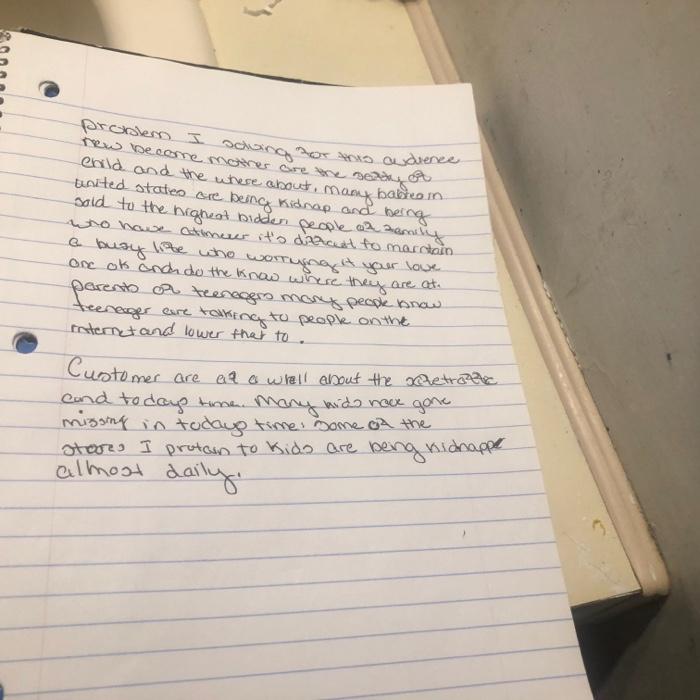 problem I solving for this audience
new become mother are the safty of
child and the where about. many babies in
united states are being kidnap and being
sold to the highest bidder. people of family
who have it's difficult to maintain
a busy life who worrying if your love
one ok and do the know where they are at.
parents of teenagers many people know
teenager are talking to people on the
internet and lower that to.
Customer are at a about the
and todays time. Many kids have gone
missing in todays time. some of the
I protain to kids are being kidnappe
almost daily.